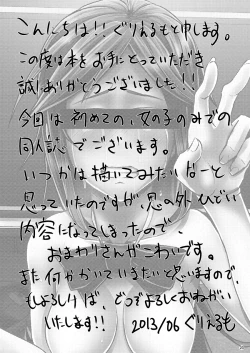 こんにちは!!ぐりえるもと申します。
この度は本をお手にとっていただき
誠にありがとうございました!!
今回は初めての、女の子のみでの
同人誌でございます。
いつかは描いてみたいなーと
思っていたのですが、思いの外ひどい
内容になってしまったので、
おまわりさんがこわいです。
また何かかいていきたいと思いますので、
もしよろしければ、どうぞよろしくおねがい
いたします!!
2013/06 ぐりえるも